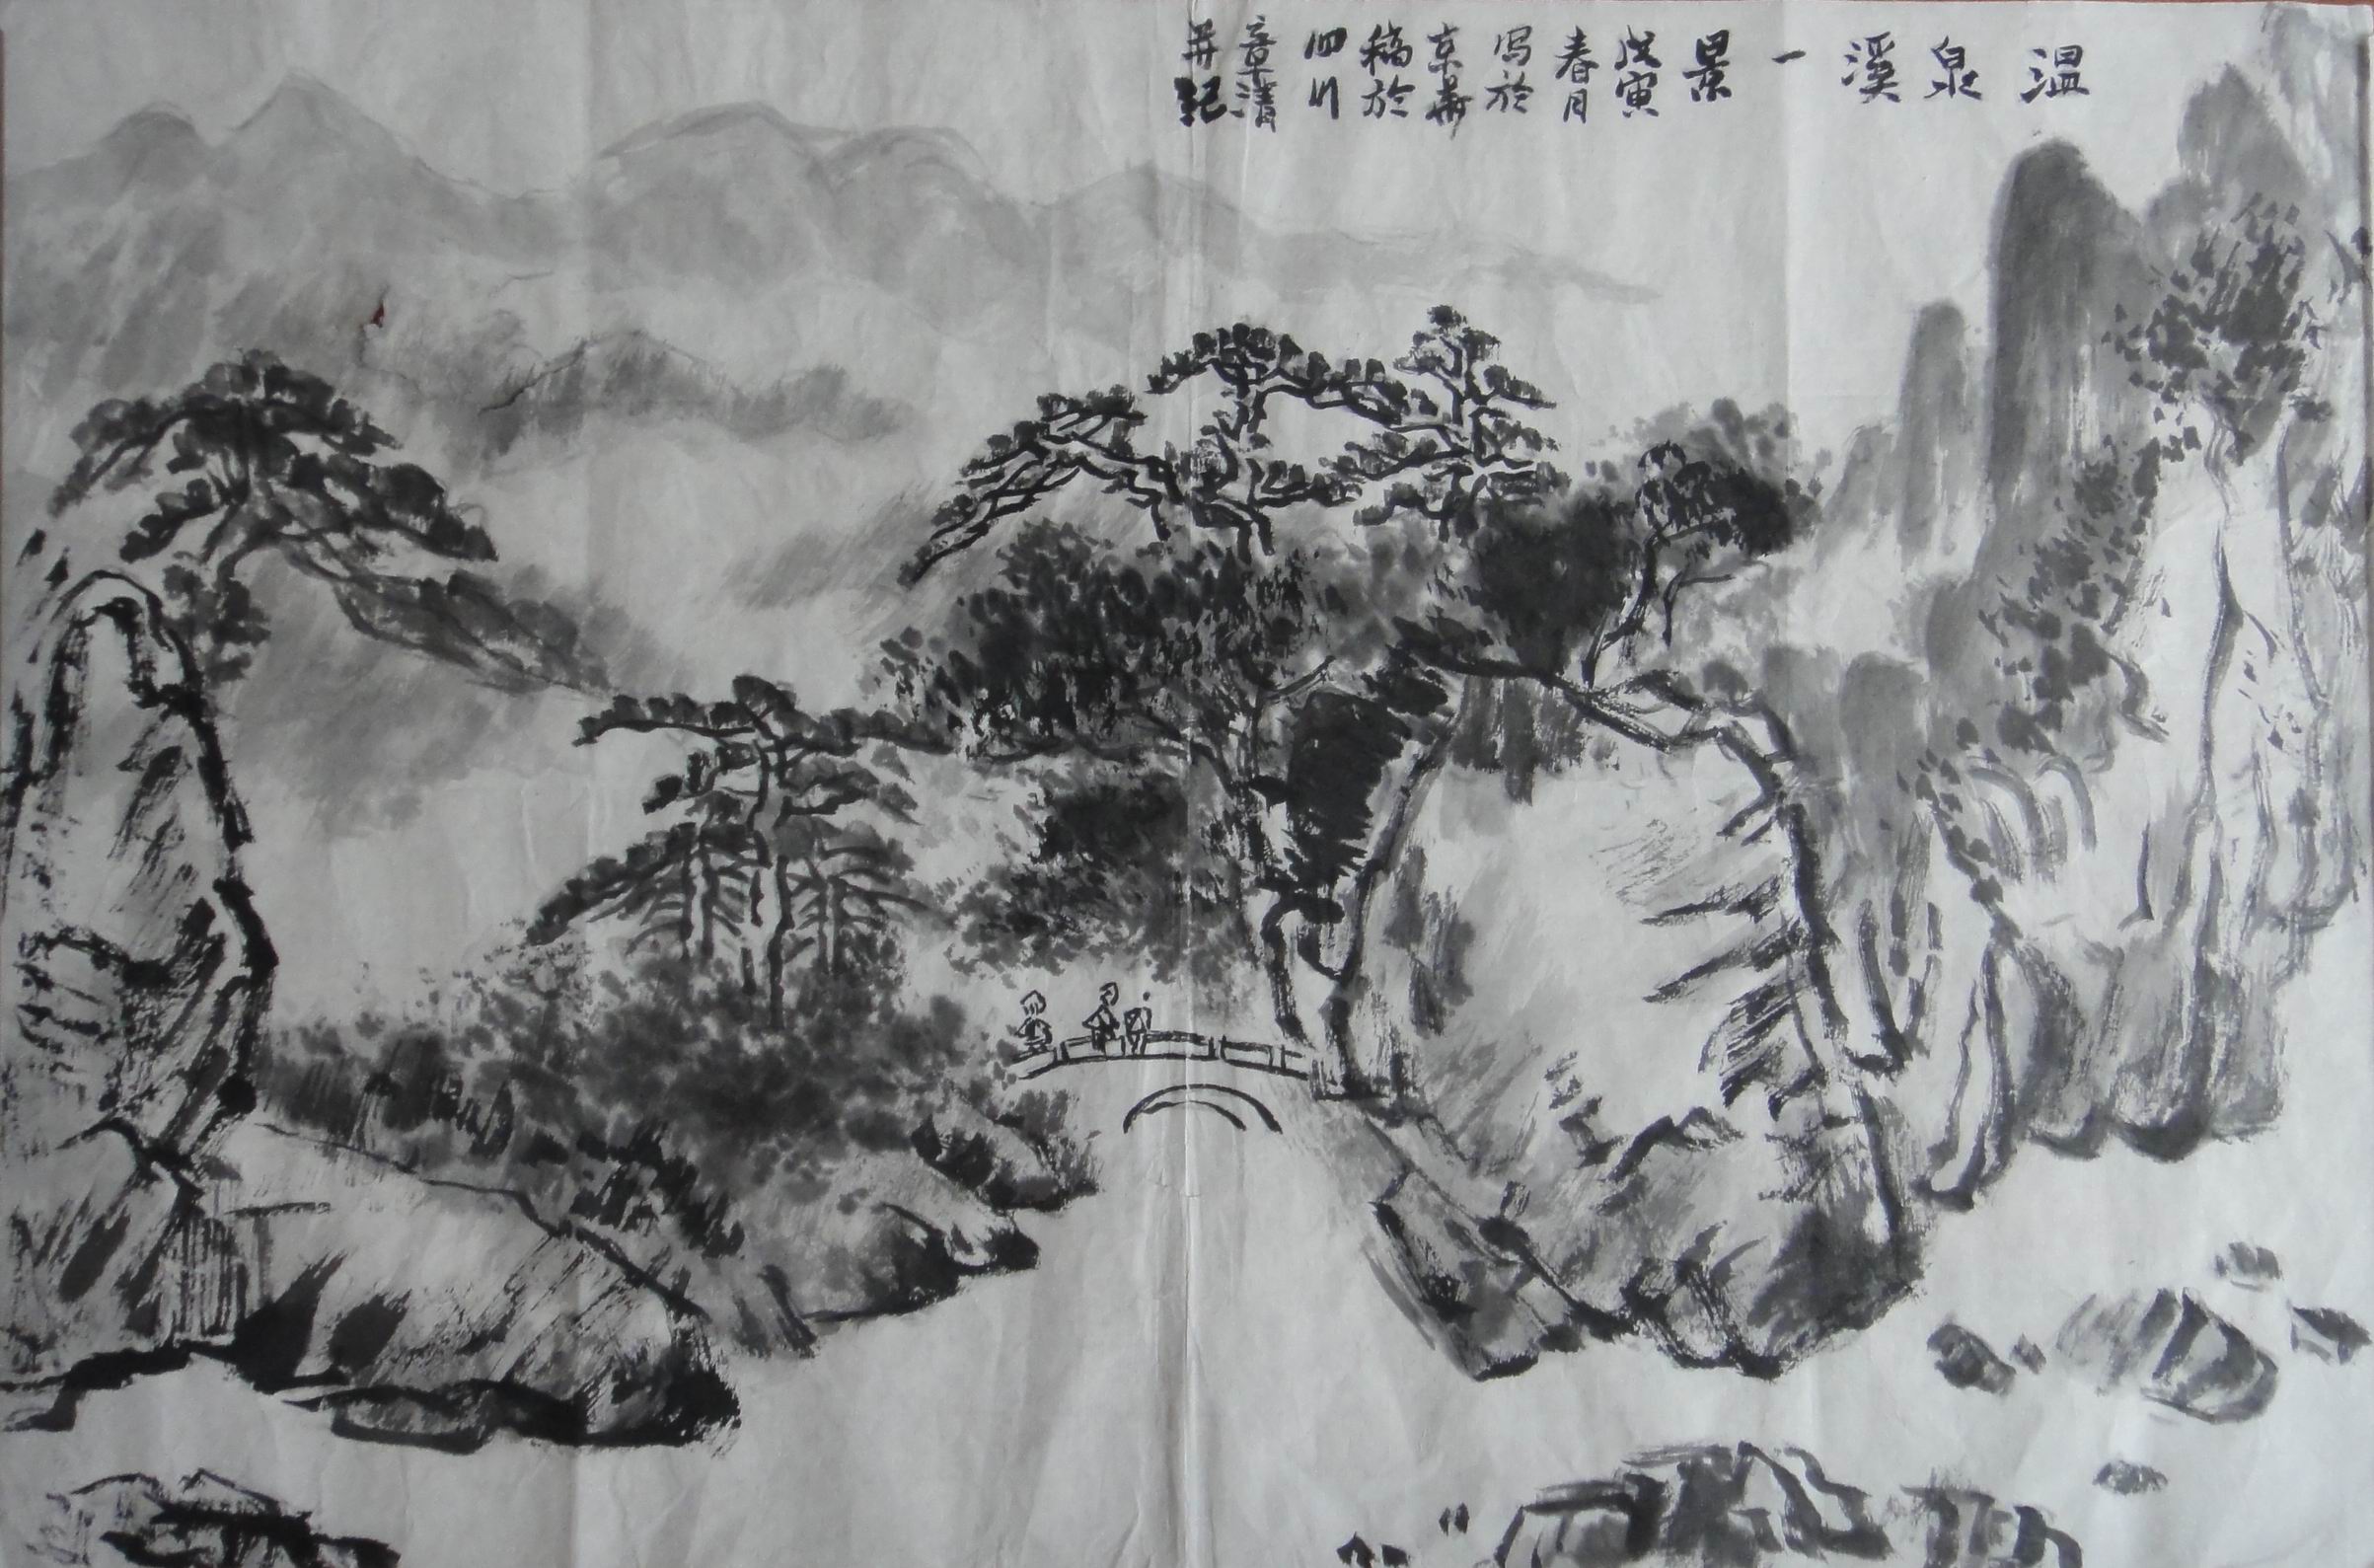 温
泉
溪
一
景
戊寅
春月
写於
京華
稿於
四川
章清
并記